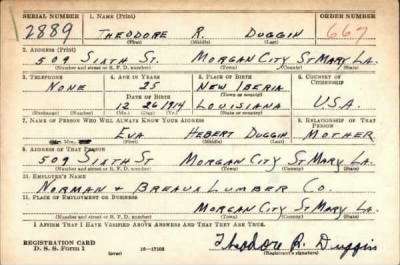 SERIAL NUMBER 1. NAME (Print) ORDER NUMBER
2889 THEODORE R. DUGGIN 667
(First) (Middle) (Last)
2. ADDRESS (Print)
509 SIXTH ST. MORGAN CITY ST MARY LA.
(Number and street or R. F. D. number) (Town) (County) (State)
3. TELEPHONE 4. AGE IN YEARS 5. PLACE OF BIRTH 6. COUNTRY OF CITIZENSHIP
NONE 25 NEW IBERIA
(Town or county)
DATE OF BIRTH
12 26 1914 LOUISIANA U.S.A.
(Exchange) (No.) (Mo.) (Day) (Yr.) (State or country)
7. NAME OF PERSON WHO WILL ALWAYS KNOW YOUR ADDRESS 8. RELATIONSHIP OF THAT PERSON
EVA HEBERT DUGGIN MOTHER
(First) (Middle) (Last)
9. ADDRESS OF THAT PERSON
509 SIXTH ST MORGAN CITY ST MARY LA.
(Number and street or R. F. D. number) (Town) (County) (State)
10. EMPLOYER'S NAME
NORMAN & BREAUX LUMBER CO.
11. PLACE OF EMPLOYMENT OR BUSINESS
MORGAN CITY ST MARY LA.
(Number and street or R. F. D. number) (Town) (County) (State)
I AFFIRM THAT I HAVE VERIFIED ABOVE ANSWERS AND THAT THEY ARE TRUE.
REGISTRATION CARD
D. S. S. Form 1 (over) Theodore R. Duggin
(Registrant's signature)